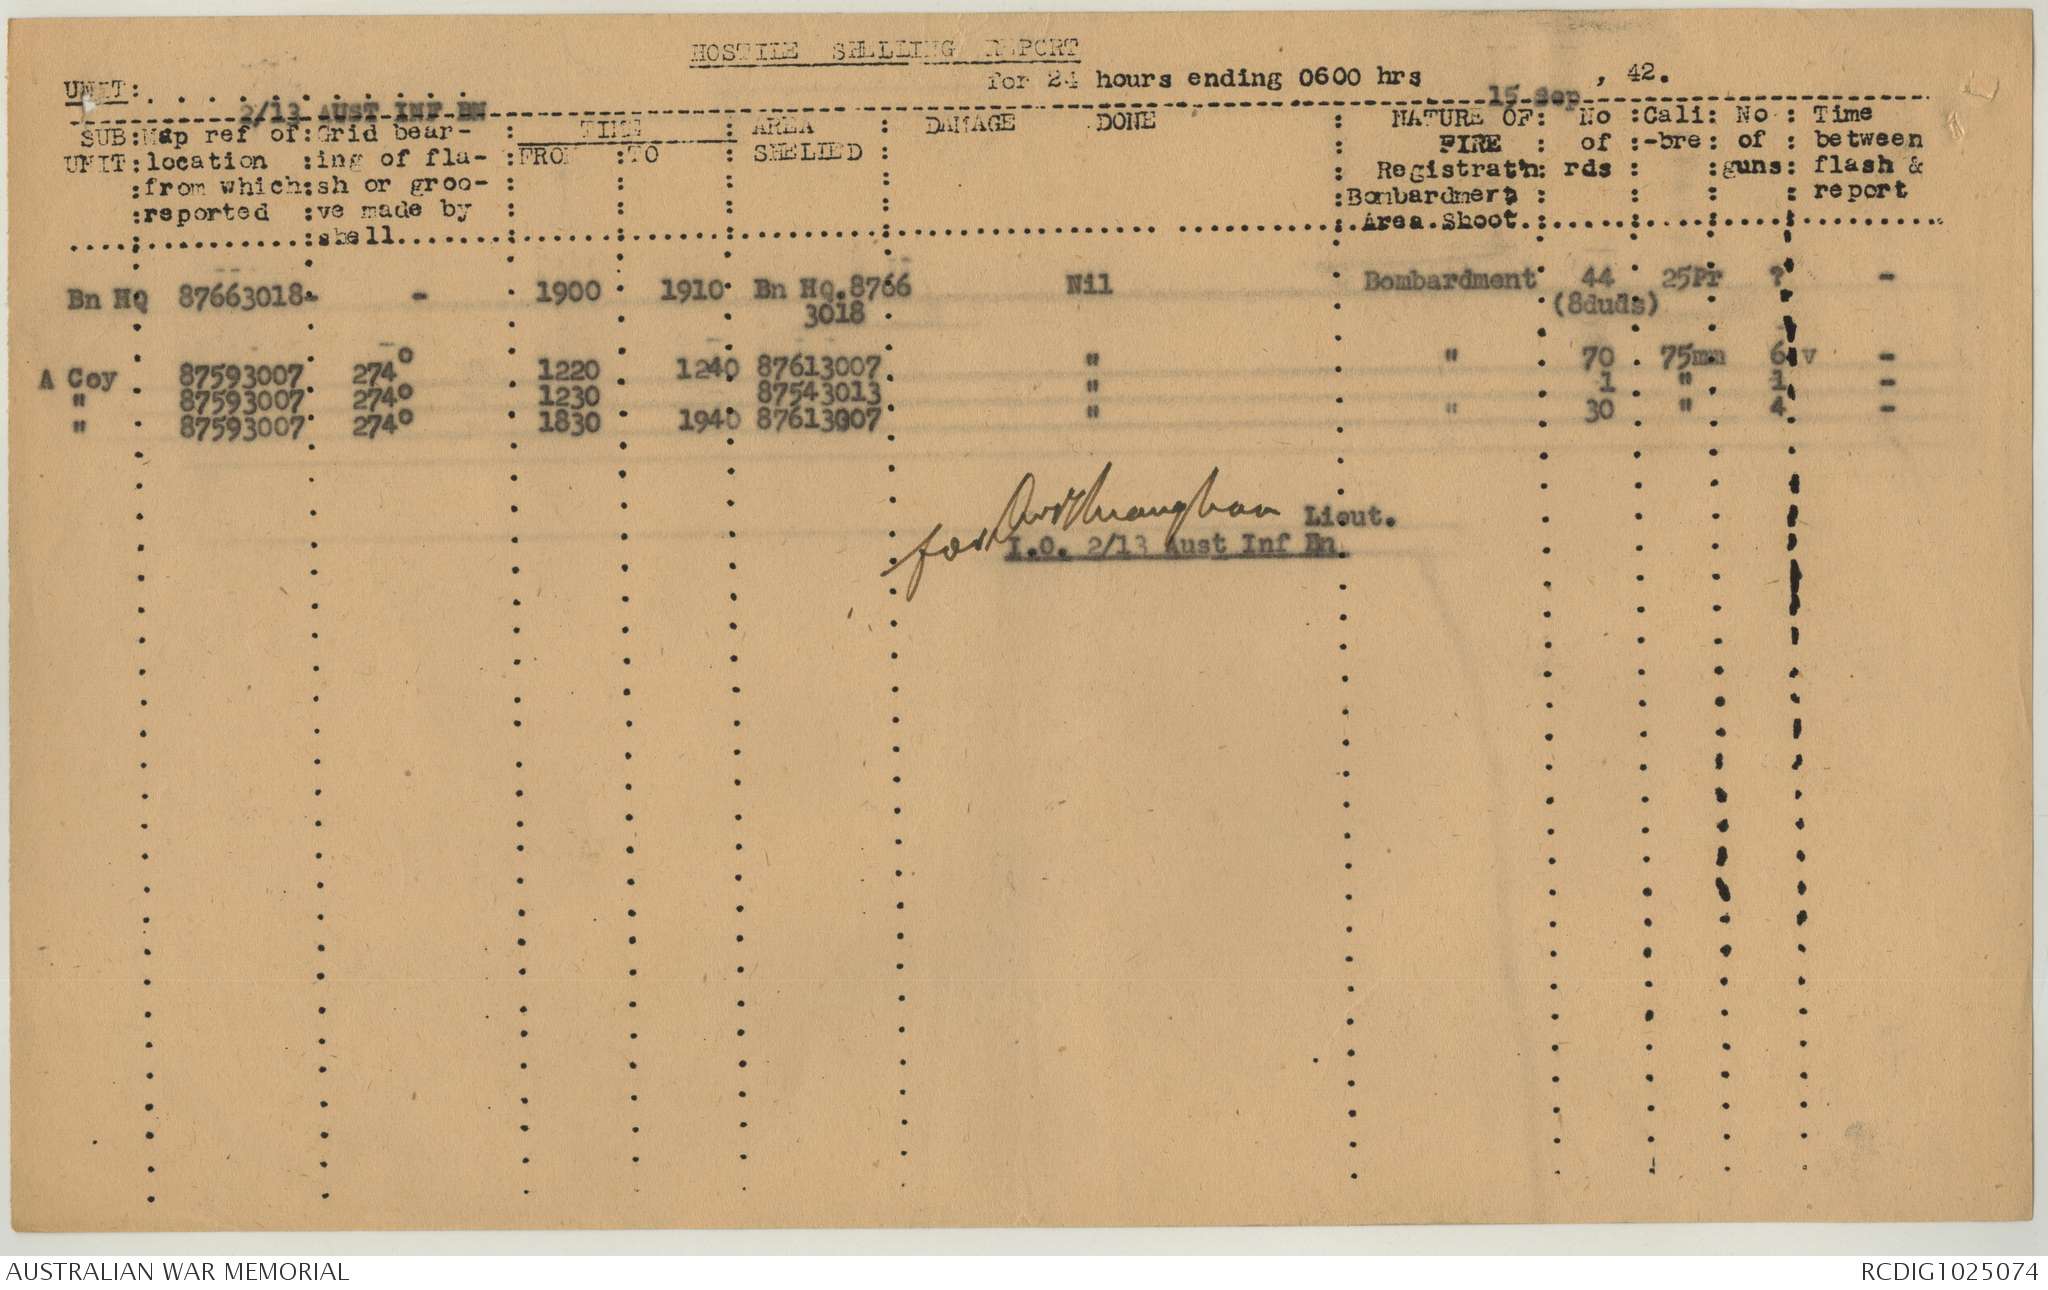 HOSTILE SHELLING REPORT
for 24 hours ending 0600 hrs 15 Sep, 42.
UNIT: 2/13 AUST INF BN
SUB UNIT: Map ref of location from which reported : Grid bearing of flash or groove made by shell : TIME FROM : TO : AREA SHELLED : DAMAGE DONE : NATURE OF FIRE Registrat'n Bombardment Area Shoot : No of rds : Cali-bre : No of guns : Time between flash & report
Bn HQ 87663018 - - 1900 1910 Bn HQ.8766 3018 Nil Bombardment 44 (8duds) 25Pr ? -
A Coy 87593007 274° 1220 1240 87613007 " " 70 75mm 6 v -
" 87593007 274° 1230 87543013 " 1 " 1 -
" 87593007 274° 1830 1940 87613007 " " 30 " 4 -
for Lieut.
I.O. 2/13 Aust Inf Bn
AUSTRALIAN WAR MEMORIAL
RCDIG1025074